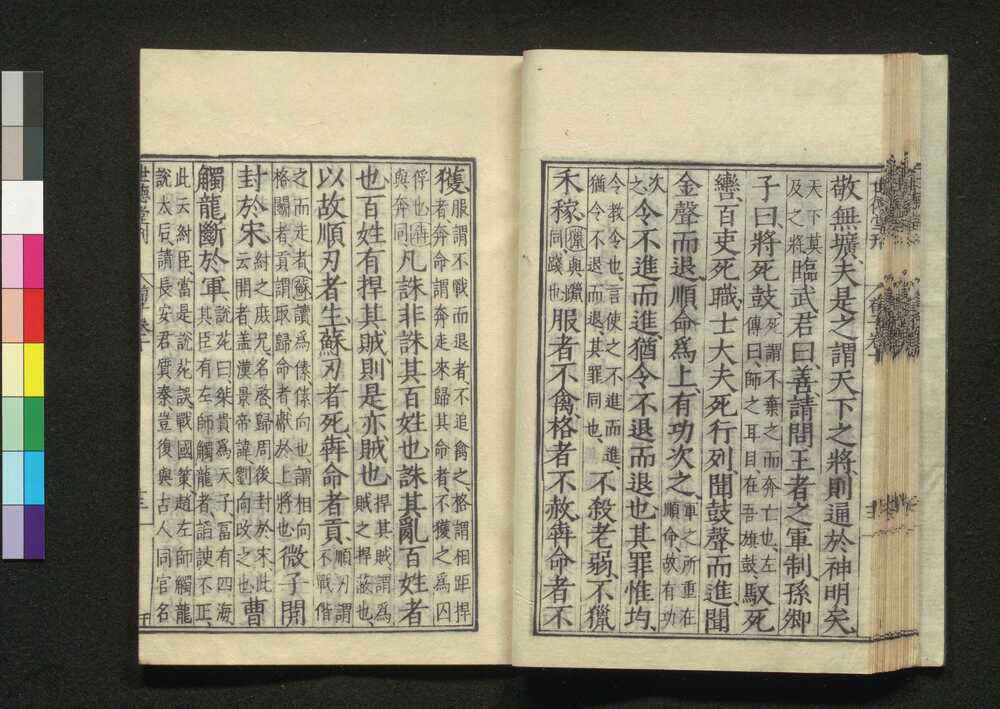 敬無壙夫是之謂天下之將則通於神明矣
天下莫
及之將
臨武君曰善請問王者之軍制孫卿
子曰將死鼓
死謂不棄之而奔亡也左
傳曰師之耳目在吾旗鼓
馭死
轡百吏死職士大夫死行列聞鼓聲而進聞
金聲而退順命爲上有功次之
軍之所重在
順命故有功
次
之
令不進而進猶令不退而退也其罪惟均
令教令也言使之不進而進
猶令不退而退其罪同也
不殺老弱不獵
禾稼
獵與躐
同踐也
服者不禽格者不赦犇命者不
獲
服謂不戰而退者不追禽之格謂相距捍
者奔命謂奔走來歸其命者不獲之爲囚
俘也犇
與奔同
凡誅非誅其百姓也誅其亂百姓者
也百姓有捍其賊則是亦賊也
捍其賊謂爲
賊之捍蔽也
以故順刃者生蘇刃者死犇命者貢
順刃謂
不戰偕
之而走者蘇讀爲傃傃向也謂相向
格鬭者貢謂取歸命者獻於上將也
微子開
封於宋
紂之庶兄名啓歸周後封於宋此
云開者蓋漢景帝諱劉向改之也
曹
觸龍斷於軍
說苑曰桀貴爲天子富有四海
其臣有左師觸龍者諂諛不正
此云紂臣當是說苑誤戰國策趙左師觸龍
說太后請長安君質秦豈復與古人同官名
世德堂刊